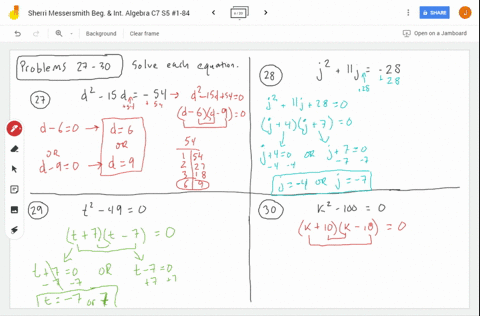 Sherri Messersmith Beg. & Int. Algebra C7 S5 #1-84
SHARE
Background
Clear frame
Open on a Jamboard
Problems 27 - 30
Solve each equation.
27
d² - 15d = -54 → d² - 15d + 54 = 0
+54 +54
(d - 6)(d - 9) = 0
d - 6 = 0 → d = 6
OR OR
d - 9 = 0 → d = 9
54
1 | 54
2 | 27
3 | 18
6 | 9
28
j² + 11j = -28
+28 +28
j² + 11j + 28 = 0
(j + 4)(j + 7) = 0
j + 4 = 0 or j + 7 = 0
-4 -4 -7 -7
j = -4 OR j = -7
29
t² - 49 = 0
(t + 7)(t - 7) = 0
t + 7 = 0 OR t - 7 = 0
-7 -7 +7 +7
t = -7 or 7
30
K² - 100 = 0
(K + 10)(K - 10) = 0